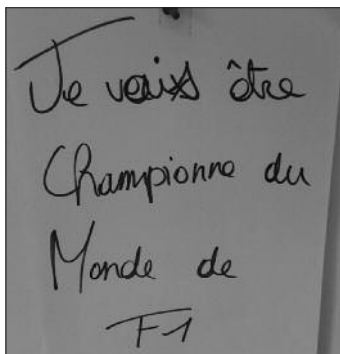 Je vais être
Championne du
Monde de
F1